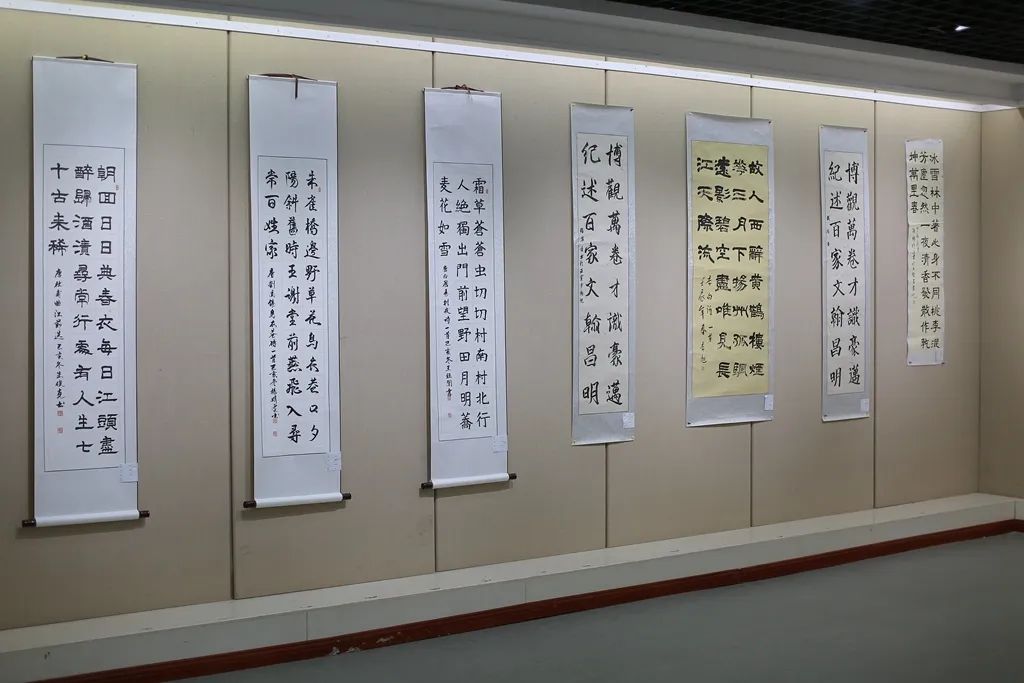 朝回日日典春衣每日江頭盡
醉歸酒債尋常行處有人生七
十古来稀 唐杜甫曲江節選
朱雀橋邊野草花烏衣巷口夕
陽斜舊時王謝堂前燕飛入尋
常百姓家 唐劉禹錫烏衣巷詩一首
霜草蒼蒼虫切切村南村北行
人绝獨出門前望野田月明蕎
麦花如雪
博觀萬卷才識豪邁
纪述百家文翰昌明
故人西辭黄鶴樓煙
花三月下揚州孤帆
遠影碧空盡唯見長
江天際流 李白詩一首
博觀萬卷才識豪邁
紀述百家文翰昌明
冰雪林中著此身不同桃李混
芳塵忽然一夜清香發散作乾
坤萬里春